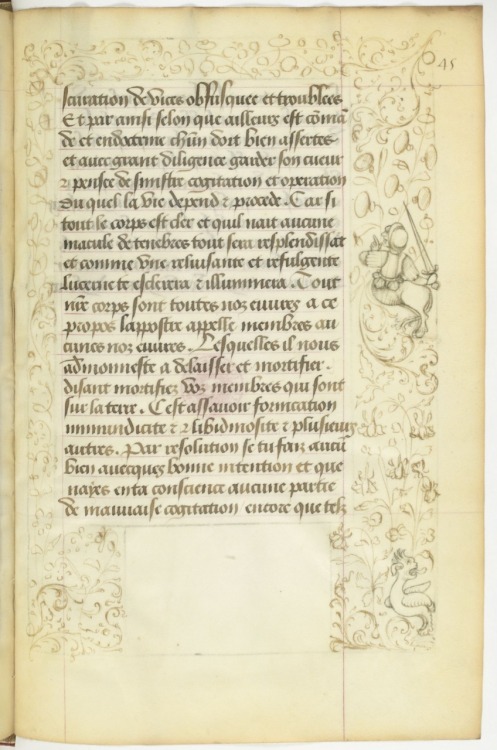 45
scuration de vices obfusquee et troublees
Et par ainsi selon que ailleurs est cōmā
de et endoctrine chūn doit bien assertes
et avec grant diligence garder son cueur
⁊ pensee de sinistre cogitation et operation
Du quel la vie depend ⁊ procede. Car si
tout le corps est cler et quil nait aucune
macule de tenebres tout sera resplendissāt
et comme vne reluisante et refulgente
lucerne te esclerera ⁊ illuminera. Tout
nr̄e corps sont toutes noz euures a ce
propos lapostre appelle membres au
cunes noz euures. Lesquelles il nous
admonneste a delaisser et mortifier.
disant mortifiez voz membres qui sont
sur la terre. Cest assauoir fornication
immundicite ⁊ libidinosite ⁊ plusieurs
autres. Par resolution se tu faiz aucū
bien auecques bonne intention et que
nayes en ta conscience aucune partie
de mauuaise cogitation encore que telz